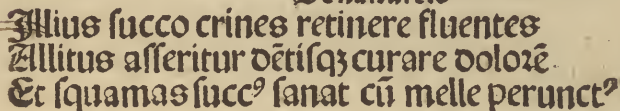 Illius ſucco crines retinere fluentes
Allitus aſſeritur dētiſqꝫ curare dolorē
Et ſquamas ſuccꝰ ſanat cū melle perunctꝰ